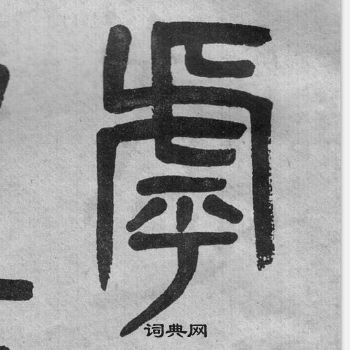 虖
词典网